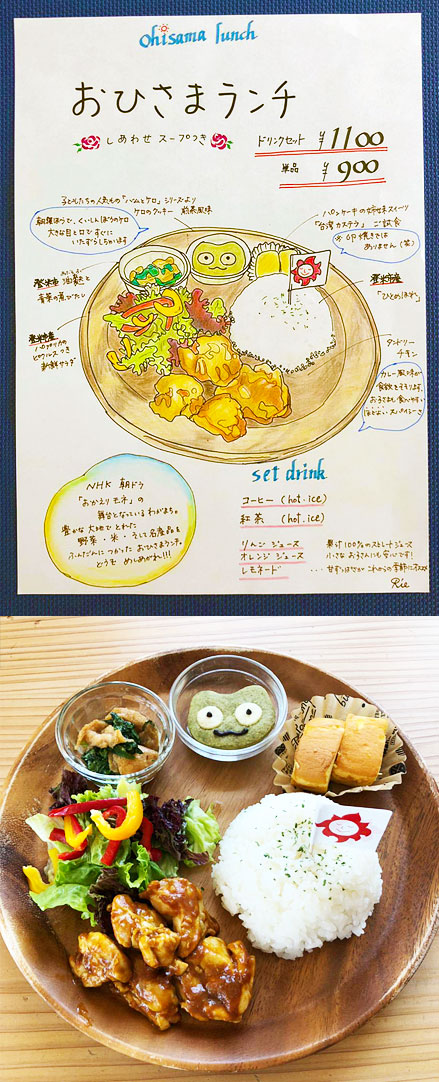 ohisama lunch
おひさまランチ
しあわせ スープつき
ドリンクセット ¥1100
単品 ¥900
子どもたちの人気もの「バムとケロ」シリーズより
ケロのクッキー 抹茶風味
大きな目と口ですぐに
いたずらしちゃいます
パンケーキの姉妹スイーツ
「台湾カステラ」 ご試食
※卵焼きでは
ありません(笑)
登米市産 油麩と
青菜の煮びたし
登米市産
パプリカの
ピクルスつき
新鮮サラダ
登米市産
「ひとめぼれ」
タンドリー
チキン
カレー風味が
食欲をそそります。
お子さまも食べやすい
ほどよい スパイシーさ
NHK 朝ドラ
「おかえりモネ」の
舞台となっているわがまち。
豊かな大地でとれた
野菜・米・そして名産品を
ふんだんにつかった おひさまランチ。
どうぞ めしあがれ!!!
set drink
コーヒー (hot.ice)
紅茶 (hot.ice)
りんごジュース
オレンジジュース
果汁100%のストレートジュース
小さなお子さんにも安心です!
レモネード ... 甘ずっぱさがこれからの季節にオススメ
Rie